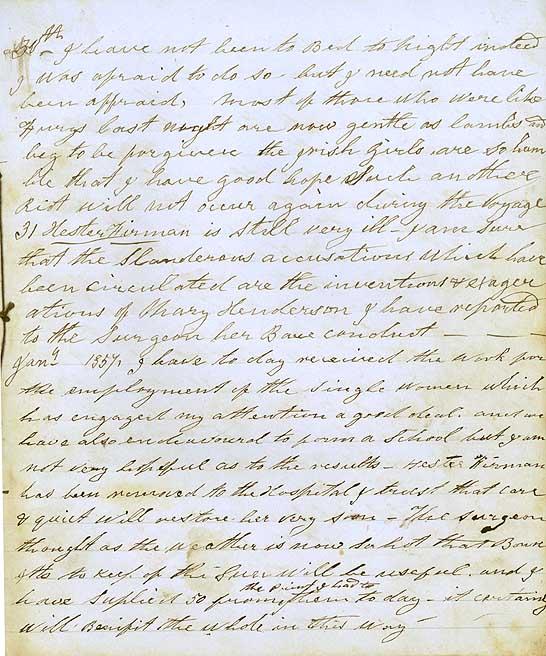 30th - I have not been to Bed to night indeed
I was afraid to do so but I need not have
been affraid, most of those who were like
Furys last night are now gentle as lambs and
beg to be forgiven the Irish Girls are so hum
ble that I have good hope Such another
Riot will not occur again during the voyage
31 Hester Firman is still very ill - I am sure
that the Slanderous accusations which have
been circulated are the inventions & exager
ations of Mary Henderson I have reported
to the Surgeon her Base conduct -
Jany 1857, I have to day received the work for
the employment of the single women which
has engaged my attention a good deal. and
have also endeavoured to form a School but I am
not very hopeful as to the results - Hester Firman
has been removed to the Hospital I trust that care
& quiet will restore her very soon - The Surgeon
thought as the weather is now so hot that
to keep of the Sun will be useful. and I
have Suplied 30 from them to day - it certainly
will Benifit the whole in this way -